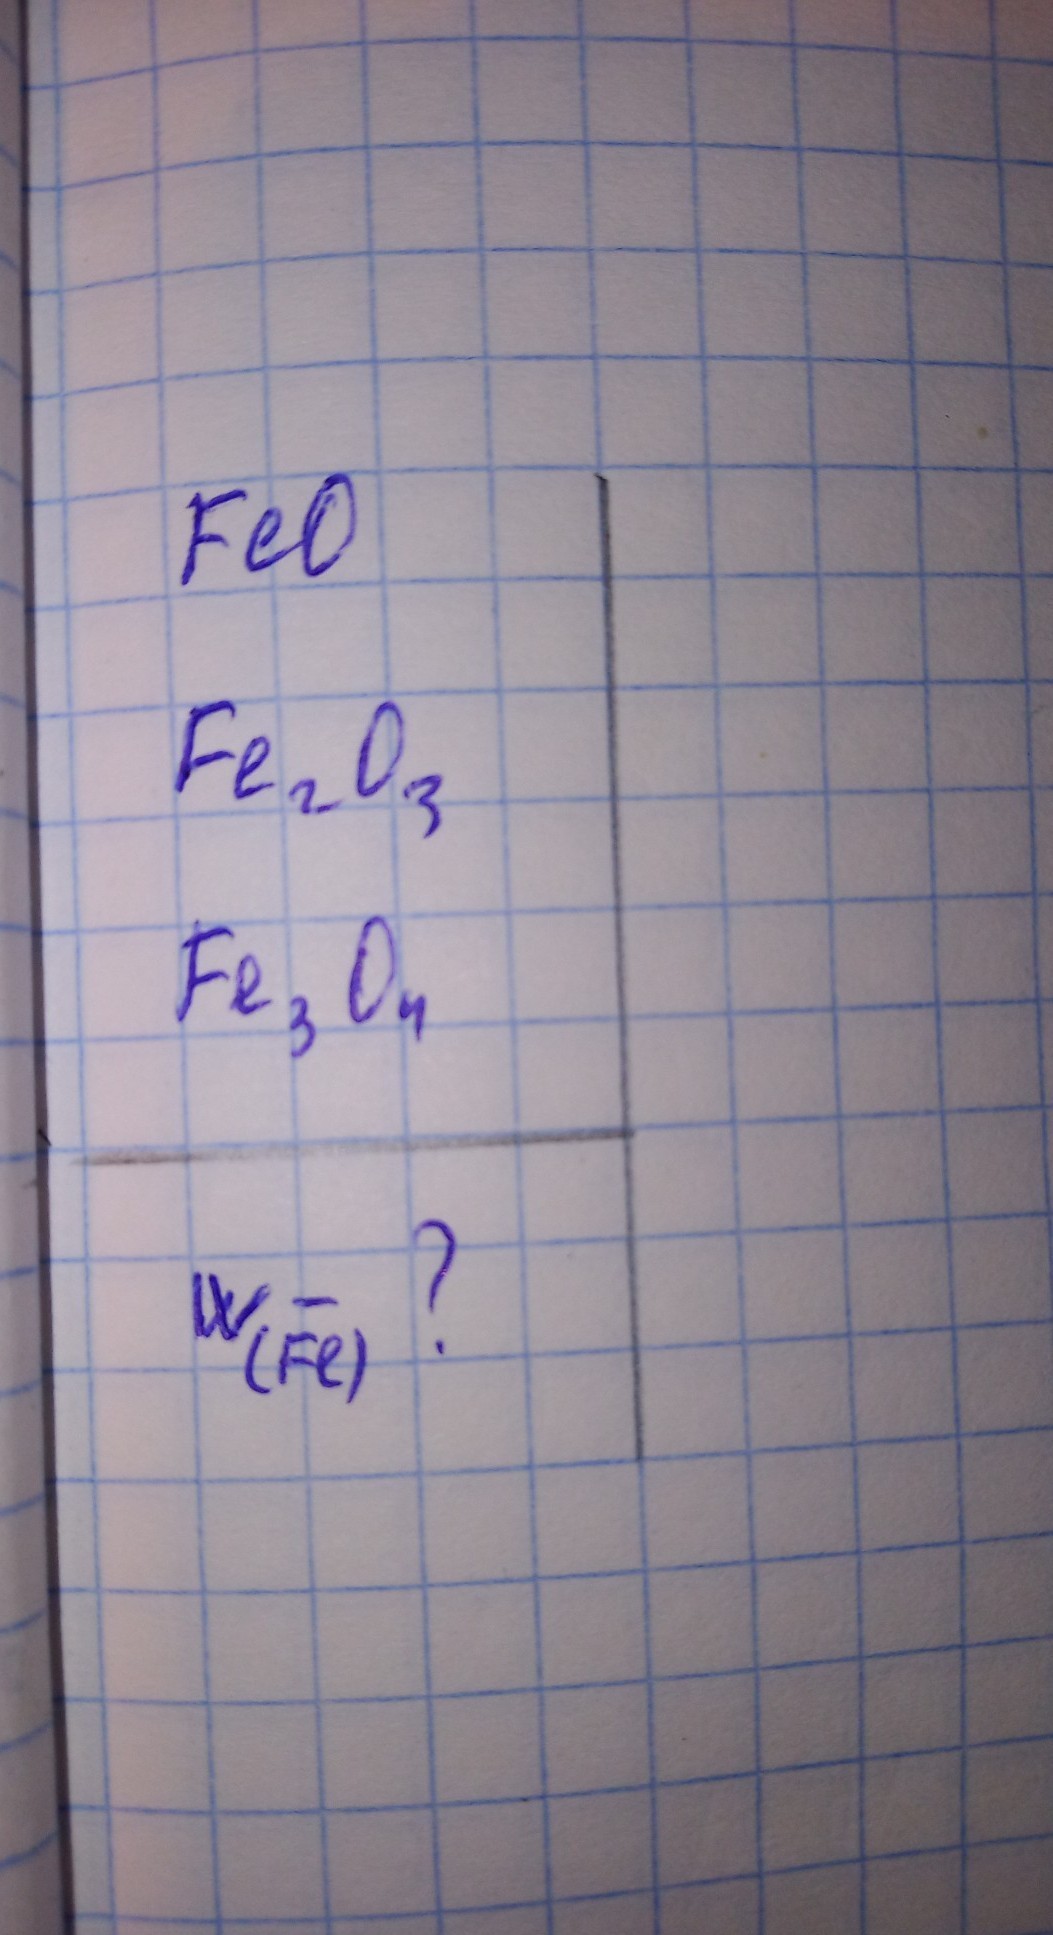 FeO
Fe₂O₃
Fe₃O₄
W(Fe) - ?